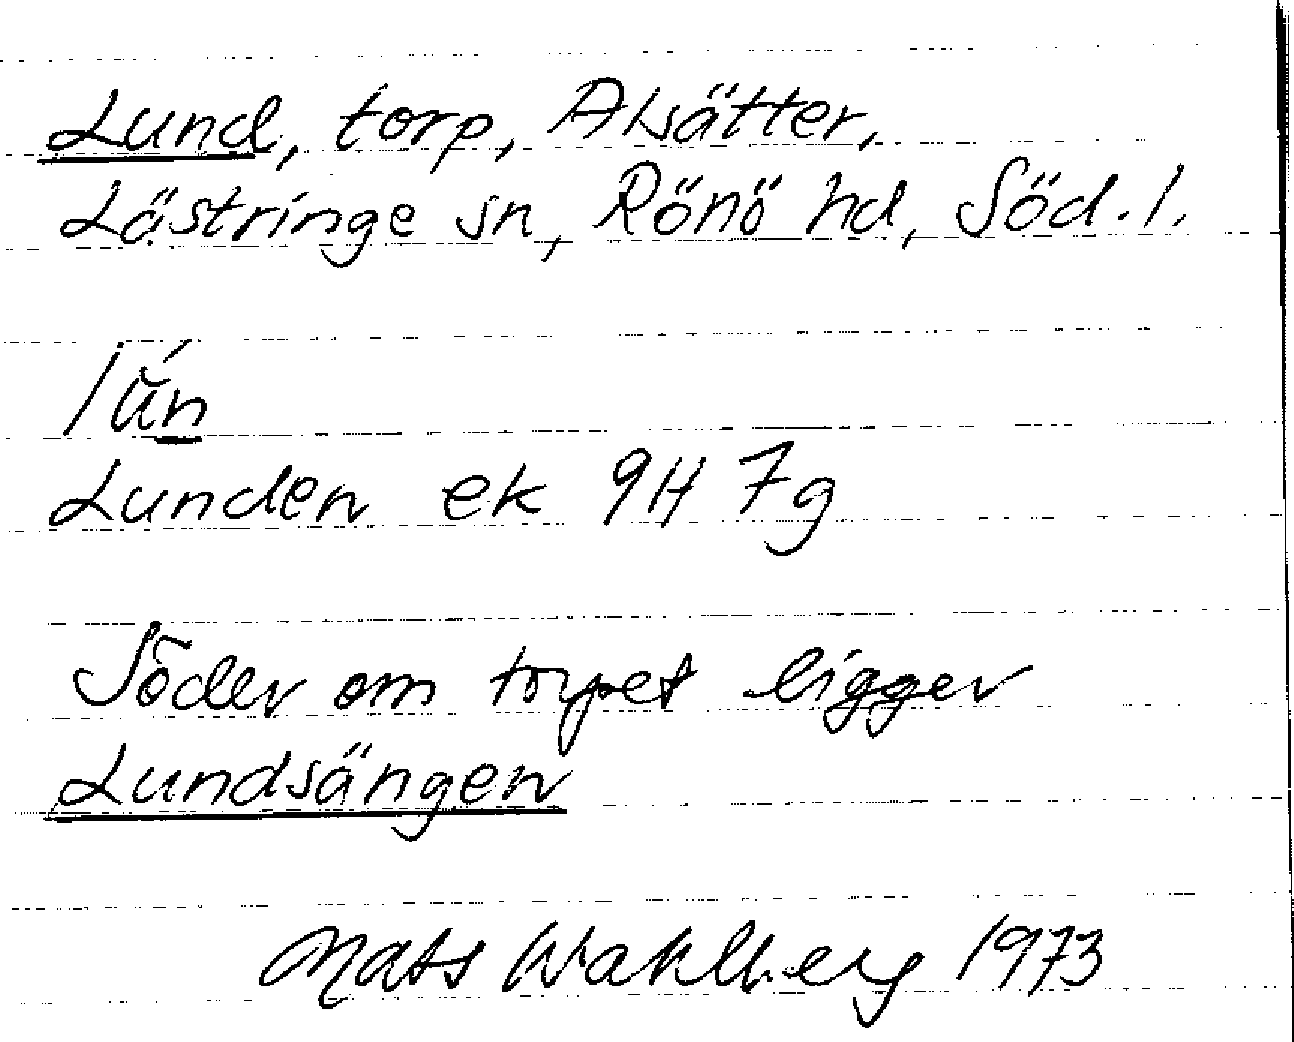 Lund, torp, Alsätter,
Lästringe sn, Rönö hd, Söd. l.
Lunden ek 9H 7g
Söder om torpet ligger
Lundsängen
Mats Wahlberg 1973